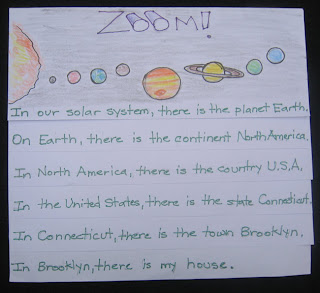 ZOOM!
In our solar system, there is the planet Earth.
On Earth, there is the continent North America.
In North America, there is the country U.S.A.
In the United States, there is the state Connecticut.
In Connecticut, there is the town Brooklyn.
In Brooklyn, there is my house.